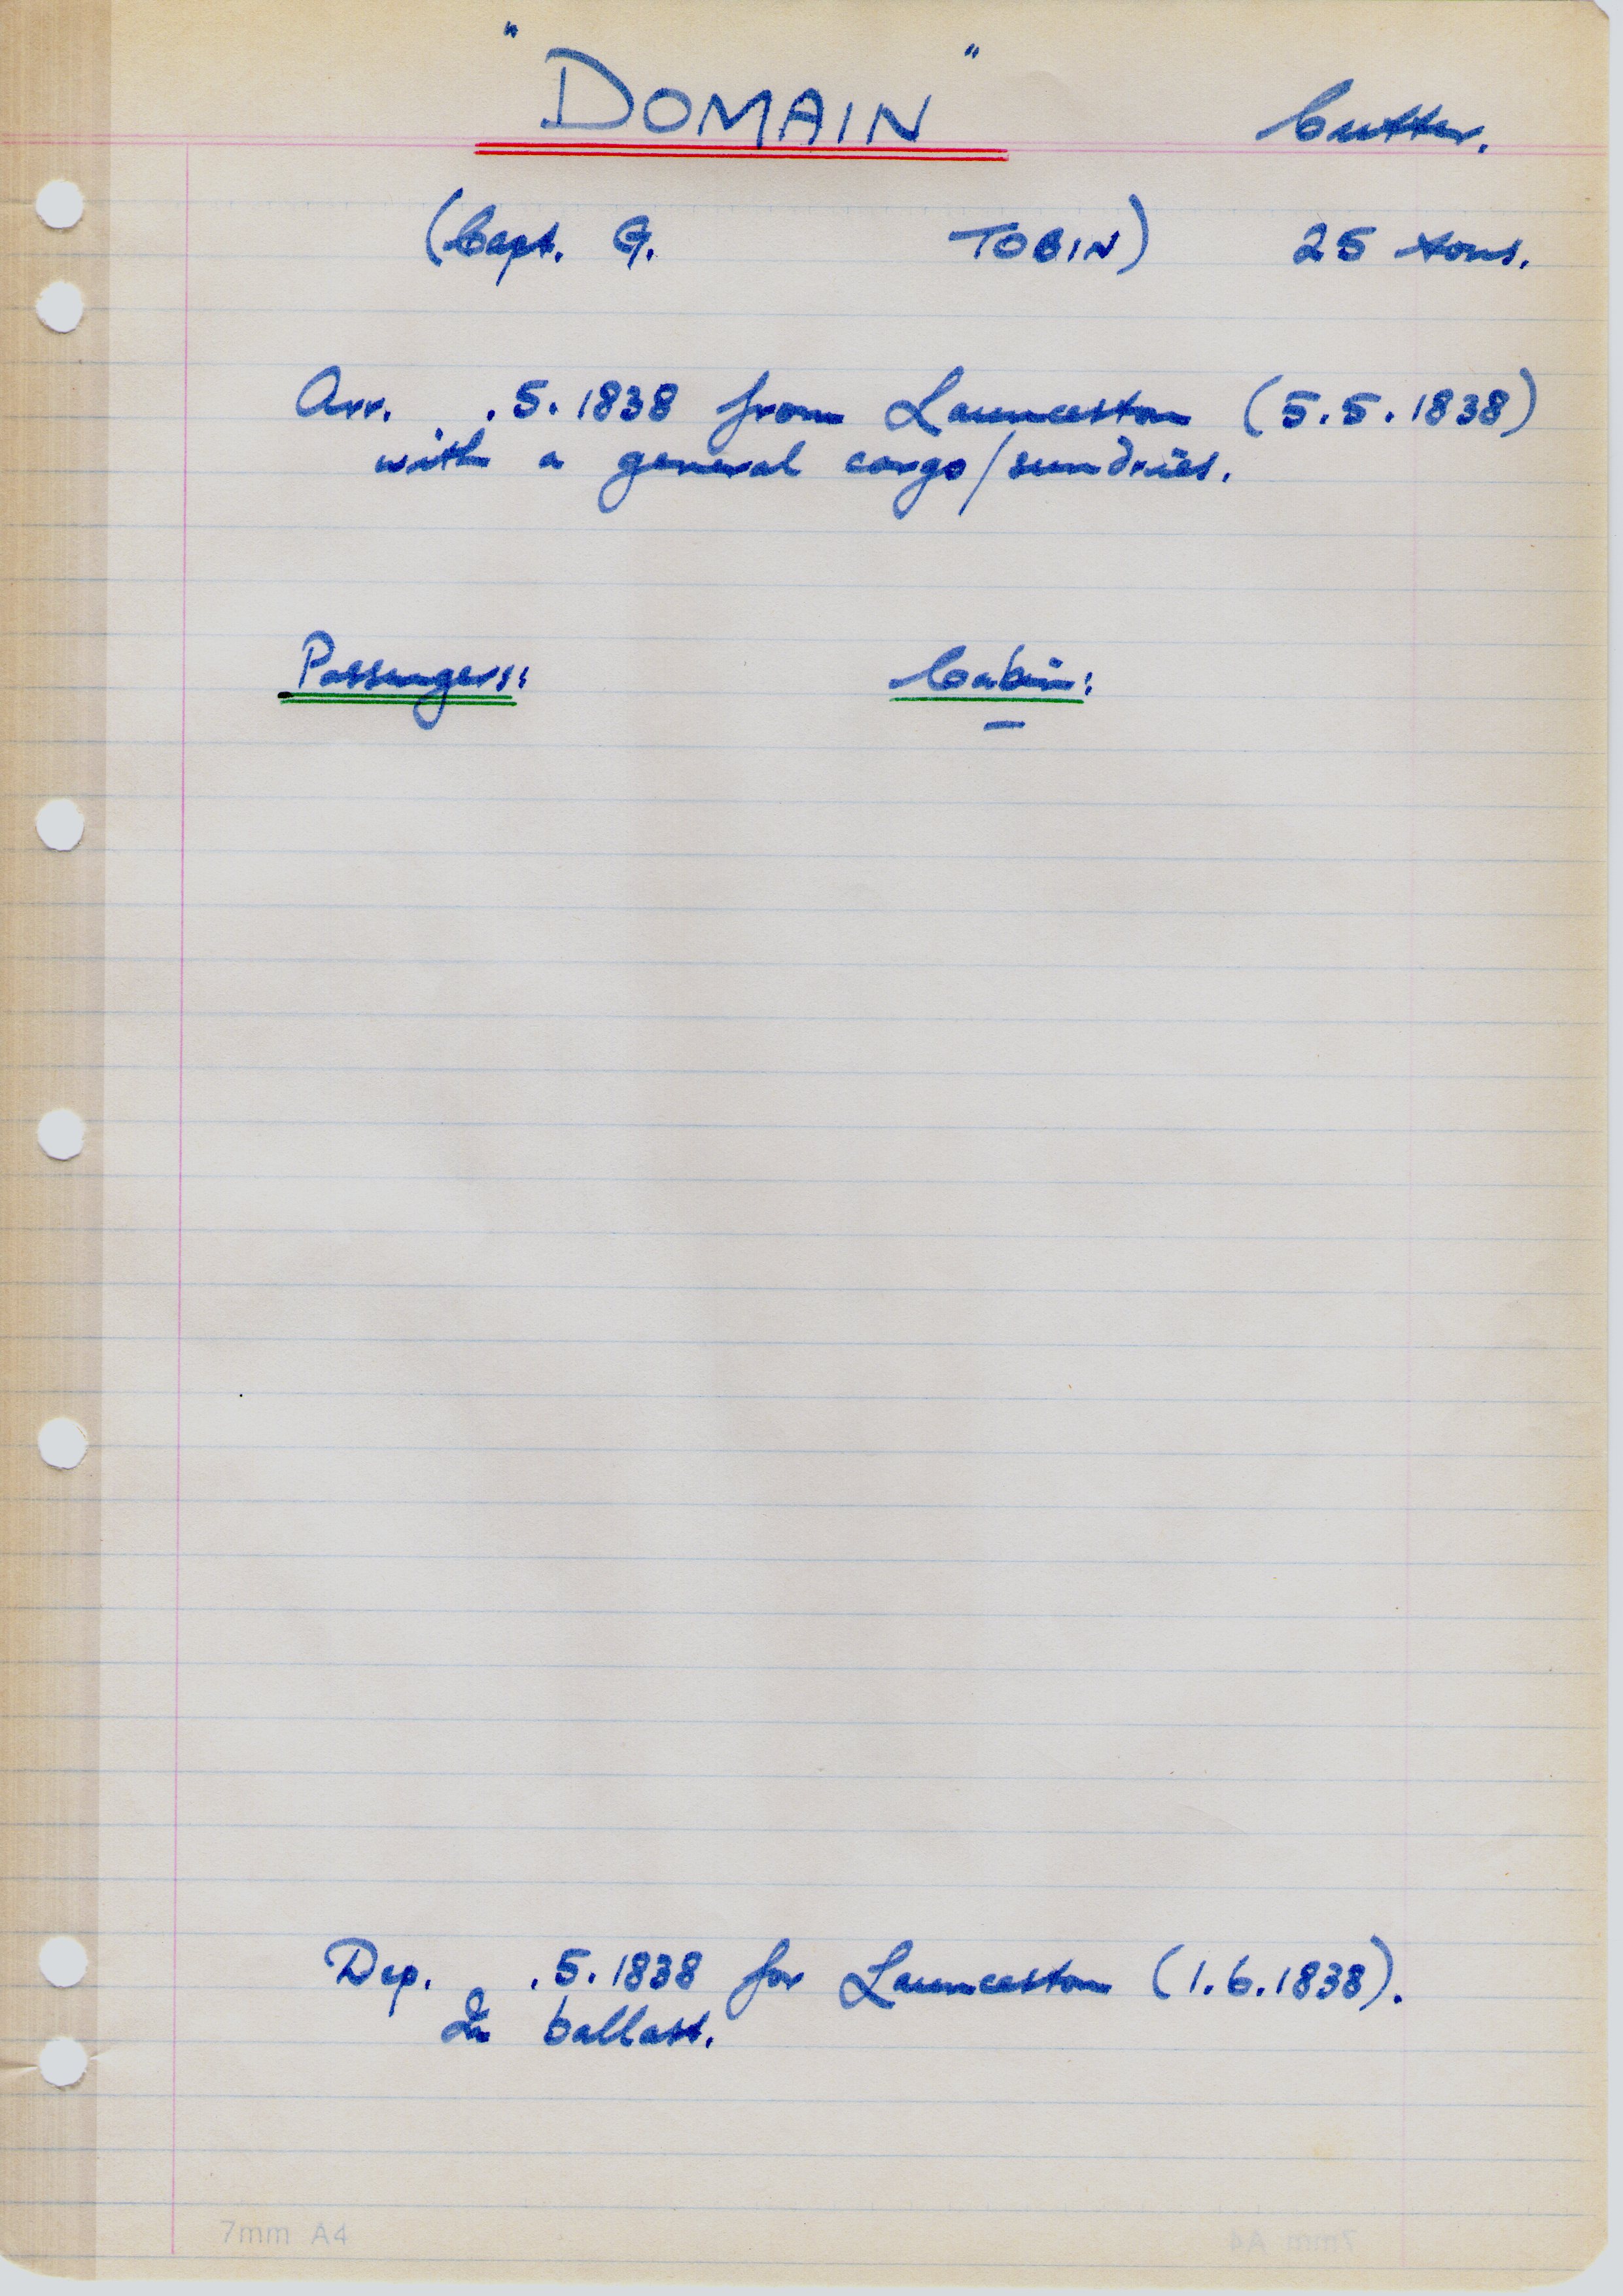 "DOMAIN" Cutter.
(Capt. G. TOBIN) 25 tons.
Arr. .5.1838 from Launceston (5.5.1838)
with a general cargo/sundries.
Passengers: Cabin:
—
Dep. .5.1838 for Launceston (1.6.1838).
In ballast.
7mm A4